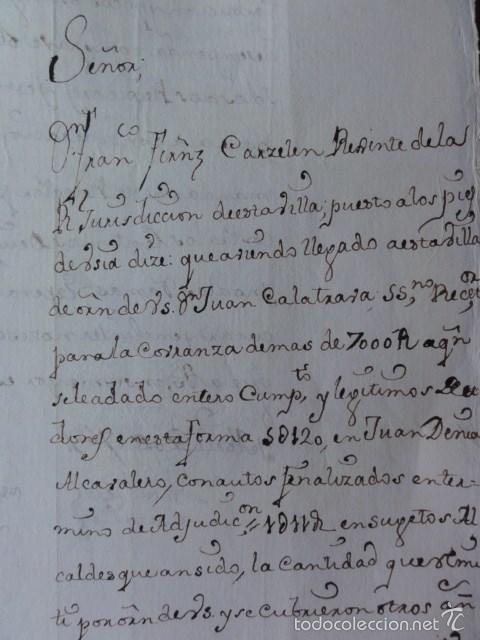 Señor;
Dn Franco Ferñz Carzelen Reginte de la
Rl Jurisdiccion de esta villa; puesto a los pies
de vsia dize: que aviendo llegado a esta villa
de orn de vs. Dn Juan Calatrava, SSno, Recetor
para la cobranza de mas de 7000 R aqn
se le a dado entero Cumpto, y legitimos
dores en esta forma en Juan Denia
Alcavalero, con autos finalizados en ter-
mino de Adjudicon en sugetos Al
caldes que an sido, la cantidad que
ti por orn de vs. y se cubrieron otros
todocoleccion.net